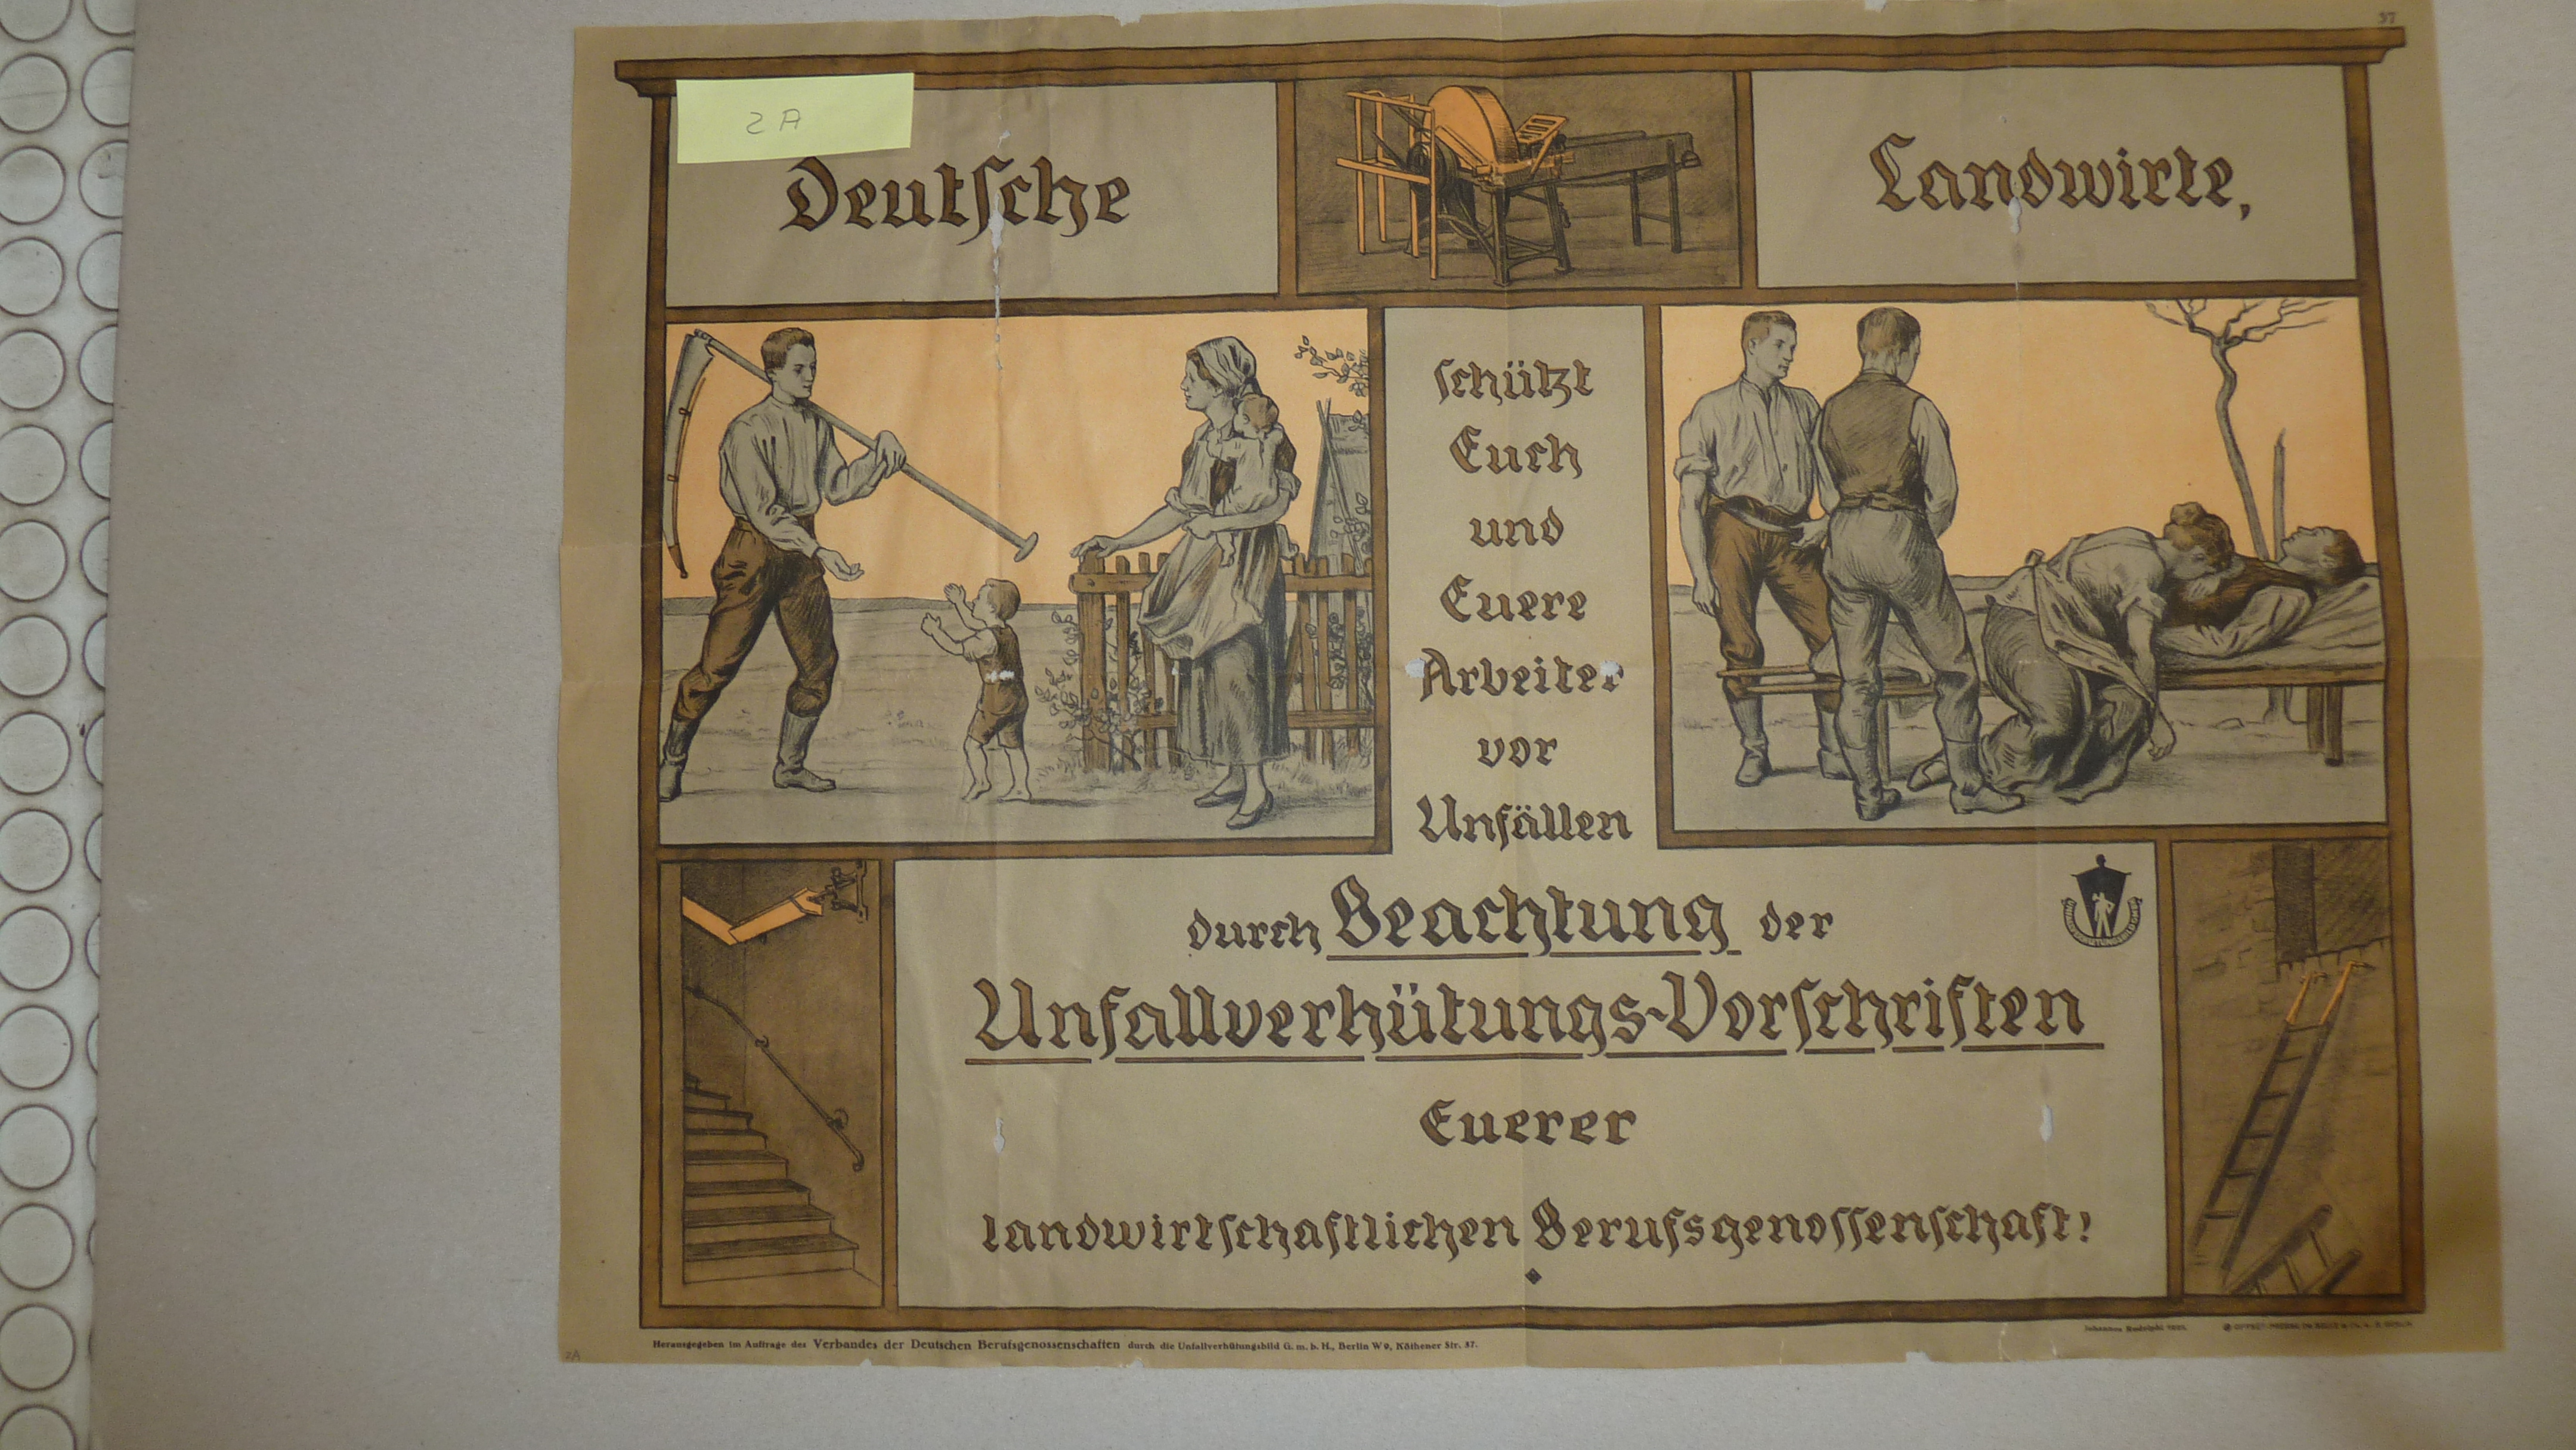 37
2 A
Deutsche
Landwirte,
schützt
Euch
und
Euere
Arbeiter
vor
Unfällen
durch Beachtung der
Unfallverhütungs-Vorschriften
Euerer
landwirtschaftlichen Berufsgenossenschaft!
Herausgegeben im Auftrage des Verbandes der Deutschen Berufsgenossenschaften durch die Unfallverhütungsbild G. m. b. H., Berlin W 9, Köthener Str. 37.
2A